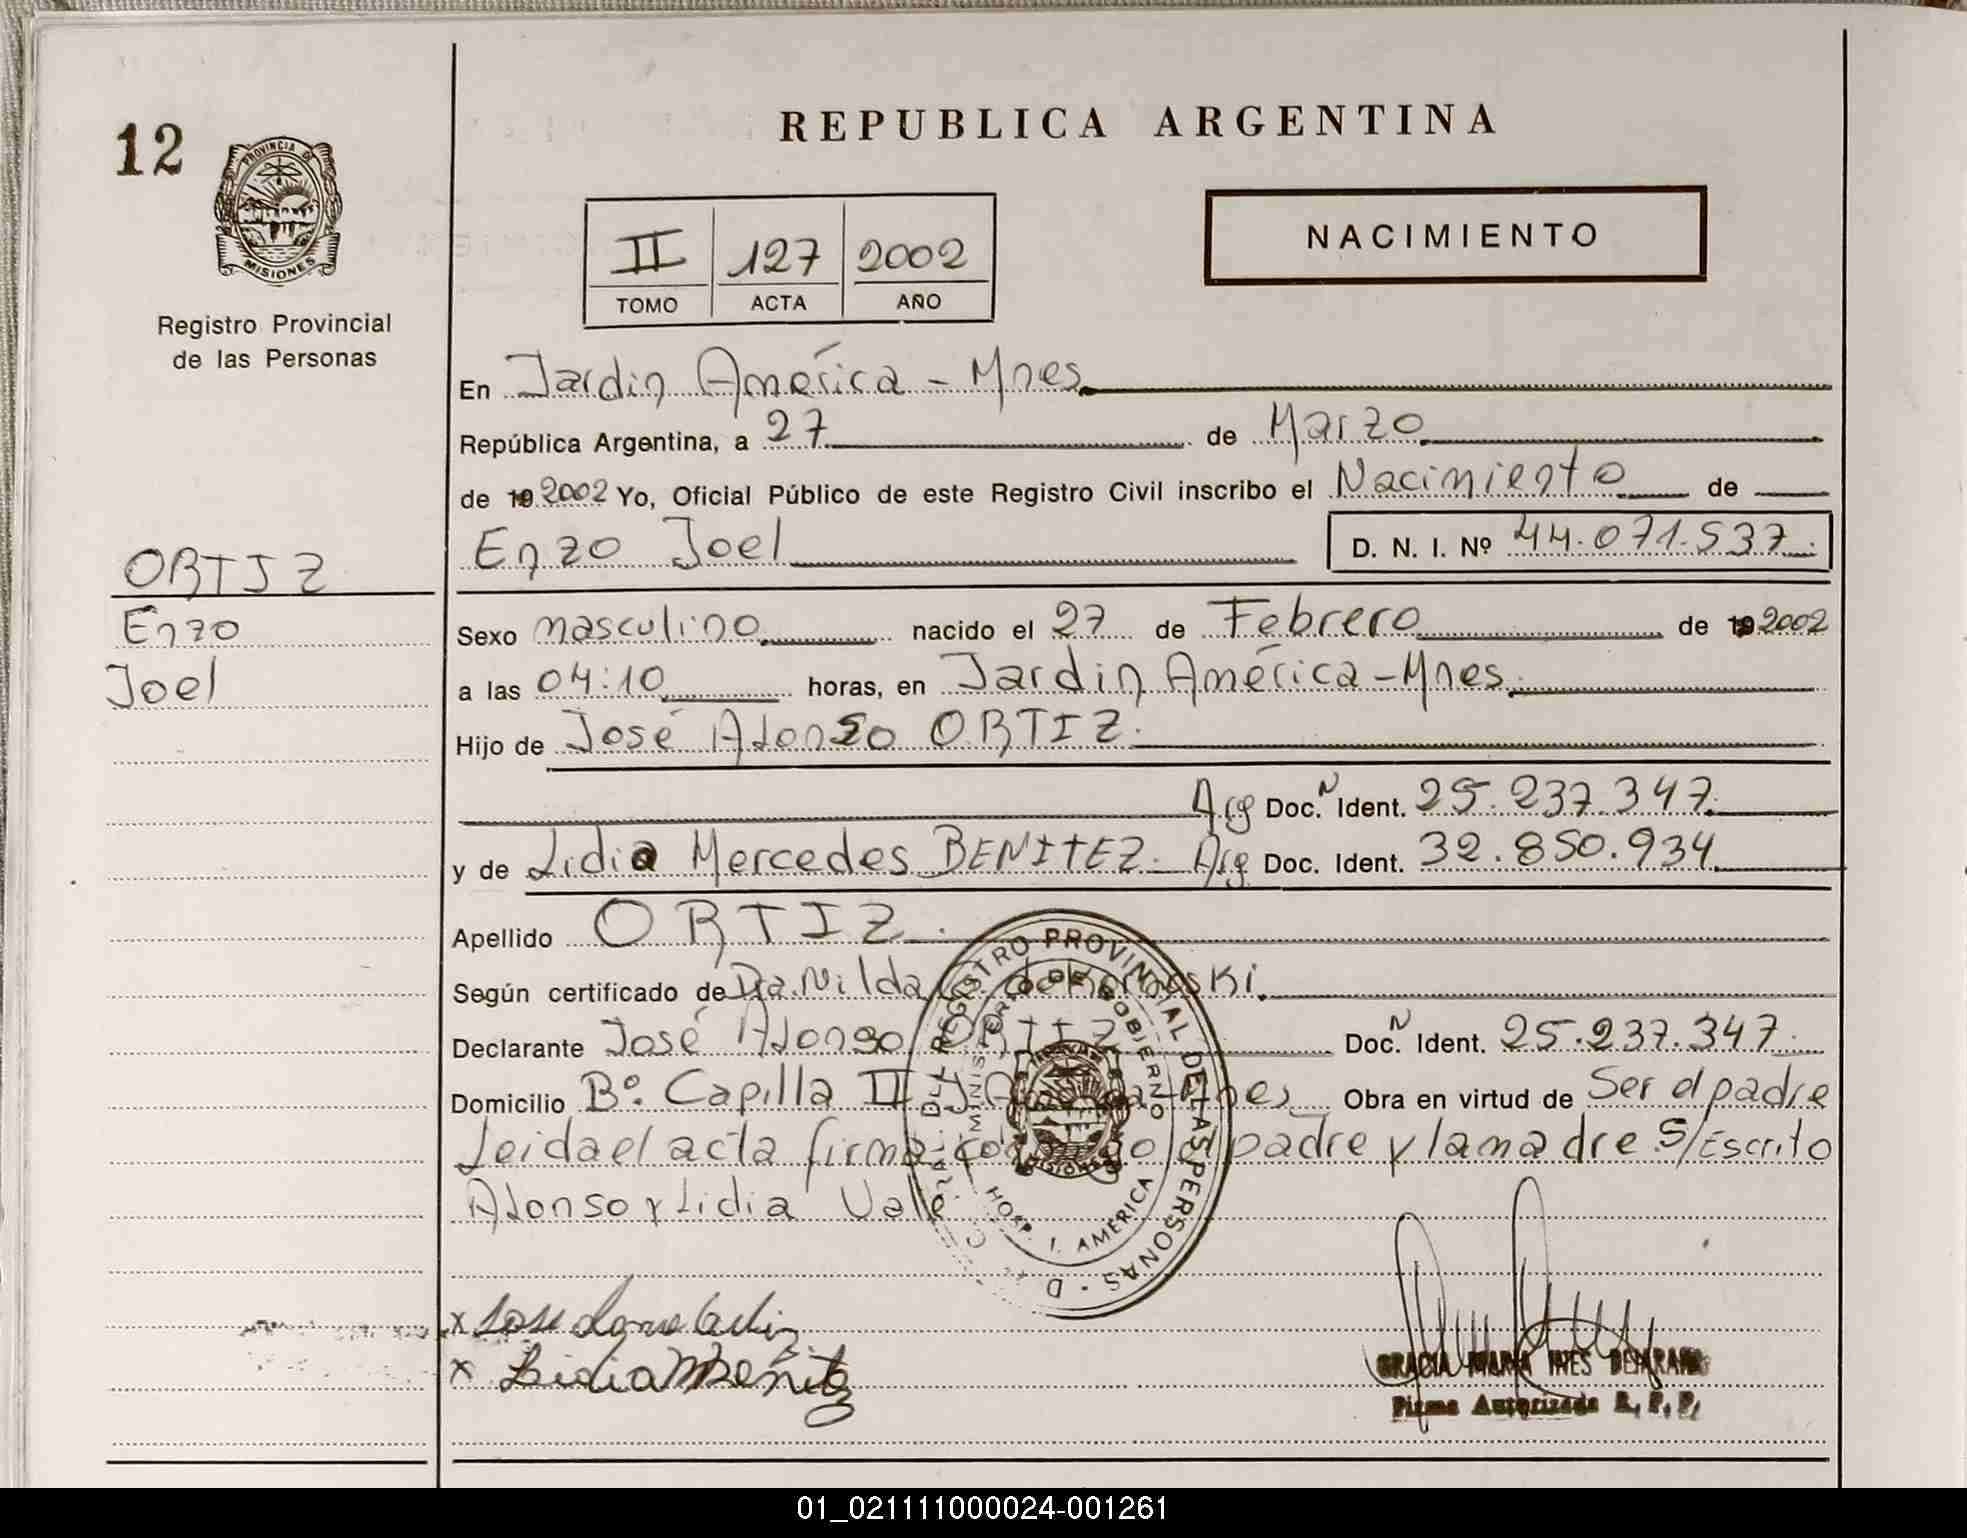 12
PROVINCIA DE
MISIONES
Registro Provincial
de las Personas
REPUBLICA ARGENTINA
II 127 2002
TOMO ACTA AÑO
NACIMIENTO
En Jardin América - Mnes.
República Argentina, a 27 de Marzo
de 19 2002 Yo, Oficial Público de este Registro Civil inscribo el Nacimiento de
Enzo Joel D. N. I. Nº 44.071.537.
ORTIZ
Enzo
Joel
Sexo masculino nacido el 27 de Febrero de 19 2002
a las 04:10 horas, en Jardin América - Mnes.
Hijo de José Alonso ORTIZ.
Arg Doc. N Ident. 25.237.347.
y de Lidia Mercedes BENITEZ. Arg Doc. Ident. 32.850.934
Apellido ORTIZ.
Según certificado de Dra. Nilda
Declarante José Alonso ORTIZ Doc. N Ident. 25.237.347.
Domicilio Bº. Capilla II Obra en virtud de Ser el padre
Leida el acta firma padre y la madre S/Escrito
Alonso y Lidia Vale
REGISTRO PROVINCIAL DE LAS PERSONAS
MINISTERIO DE GOBIERNO
HOSP. J. AMERICA
x Jose
x Lidia M Benitez
GRACIA MARIA INES
Firma Autorizada R. P. P.
01_021111000024-001261